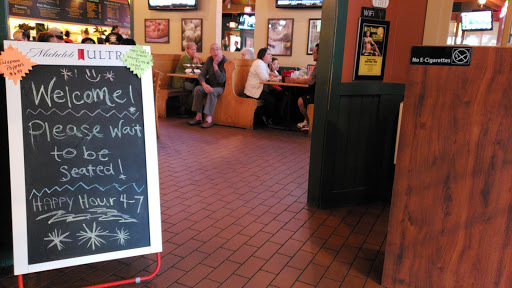 Michelob ULTRA
Welcome!
Please Wait
to be
Seated!
Happy Hour 4-7
WiFi
No E-Cigarettes